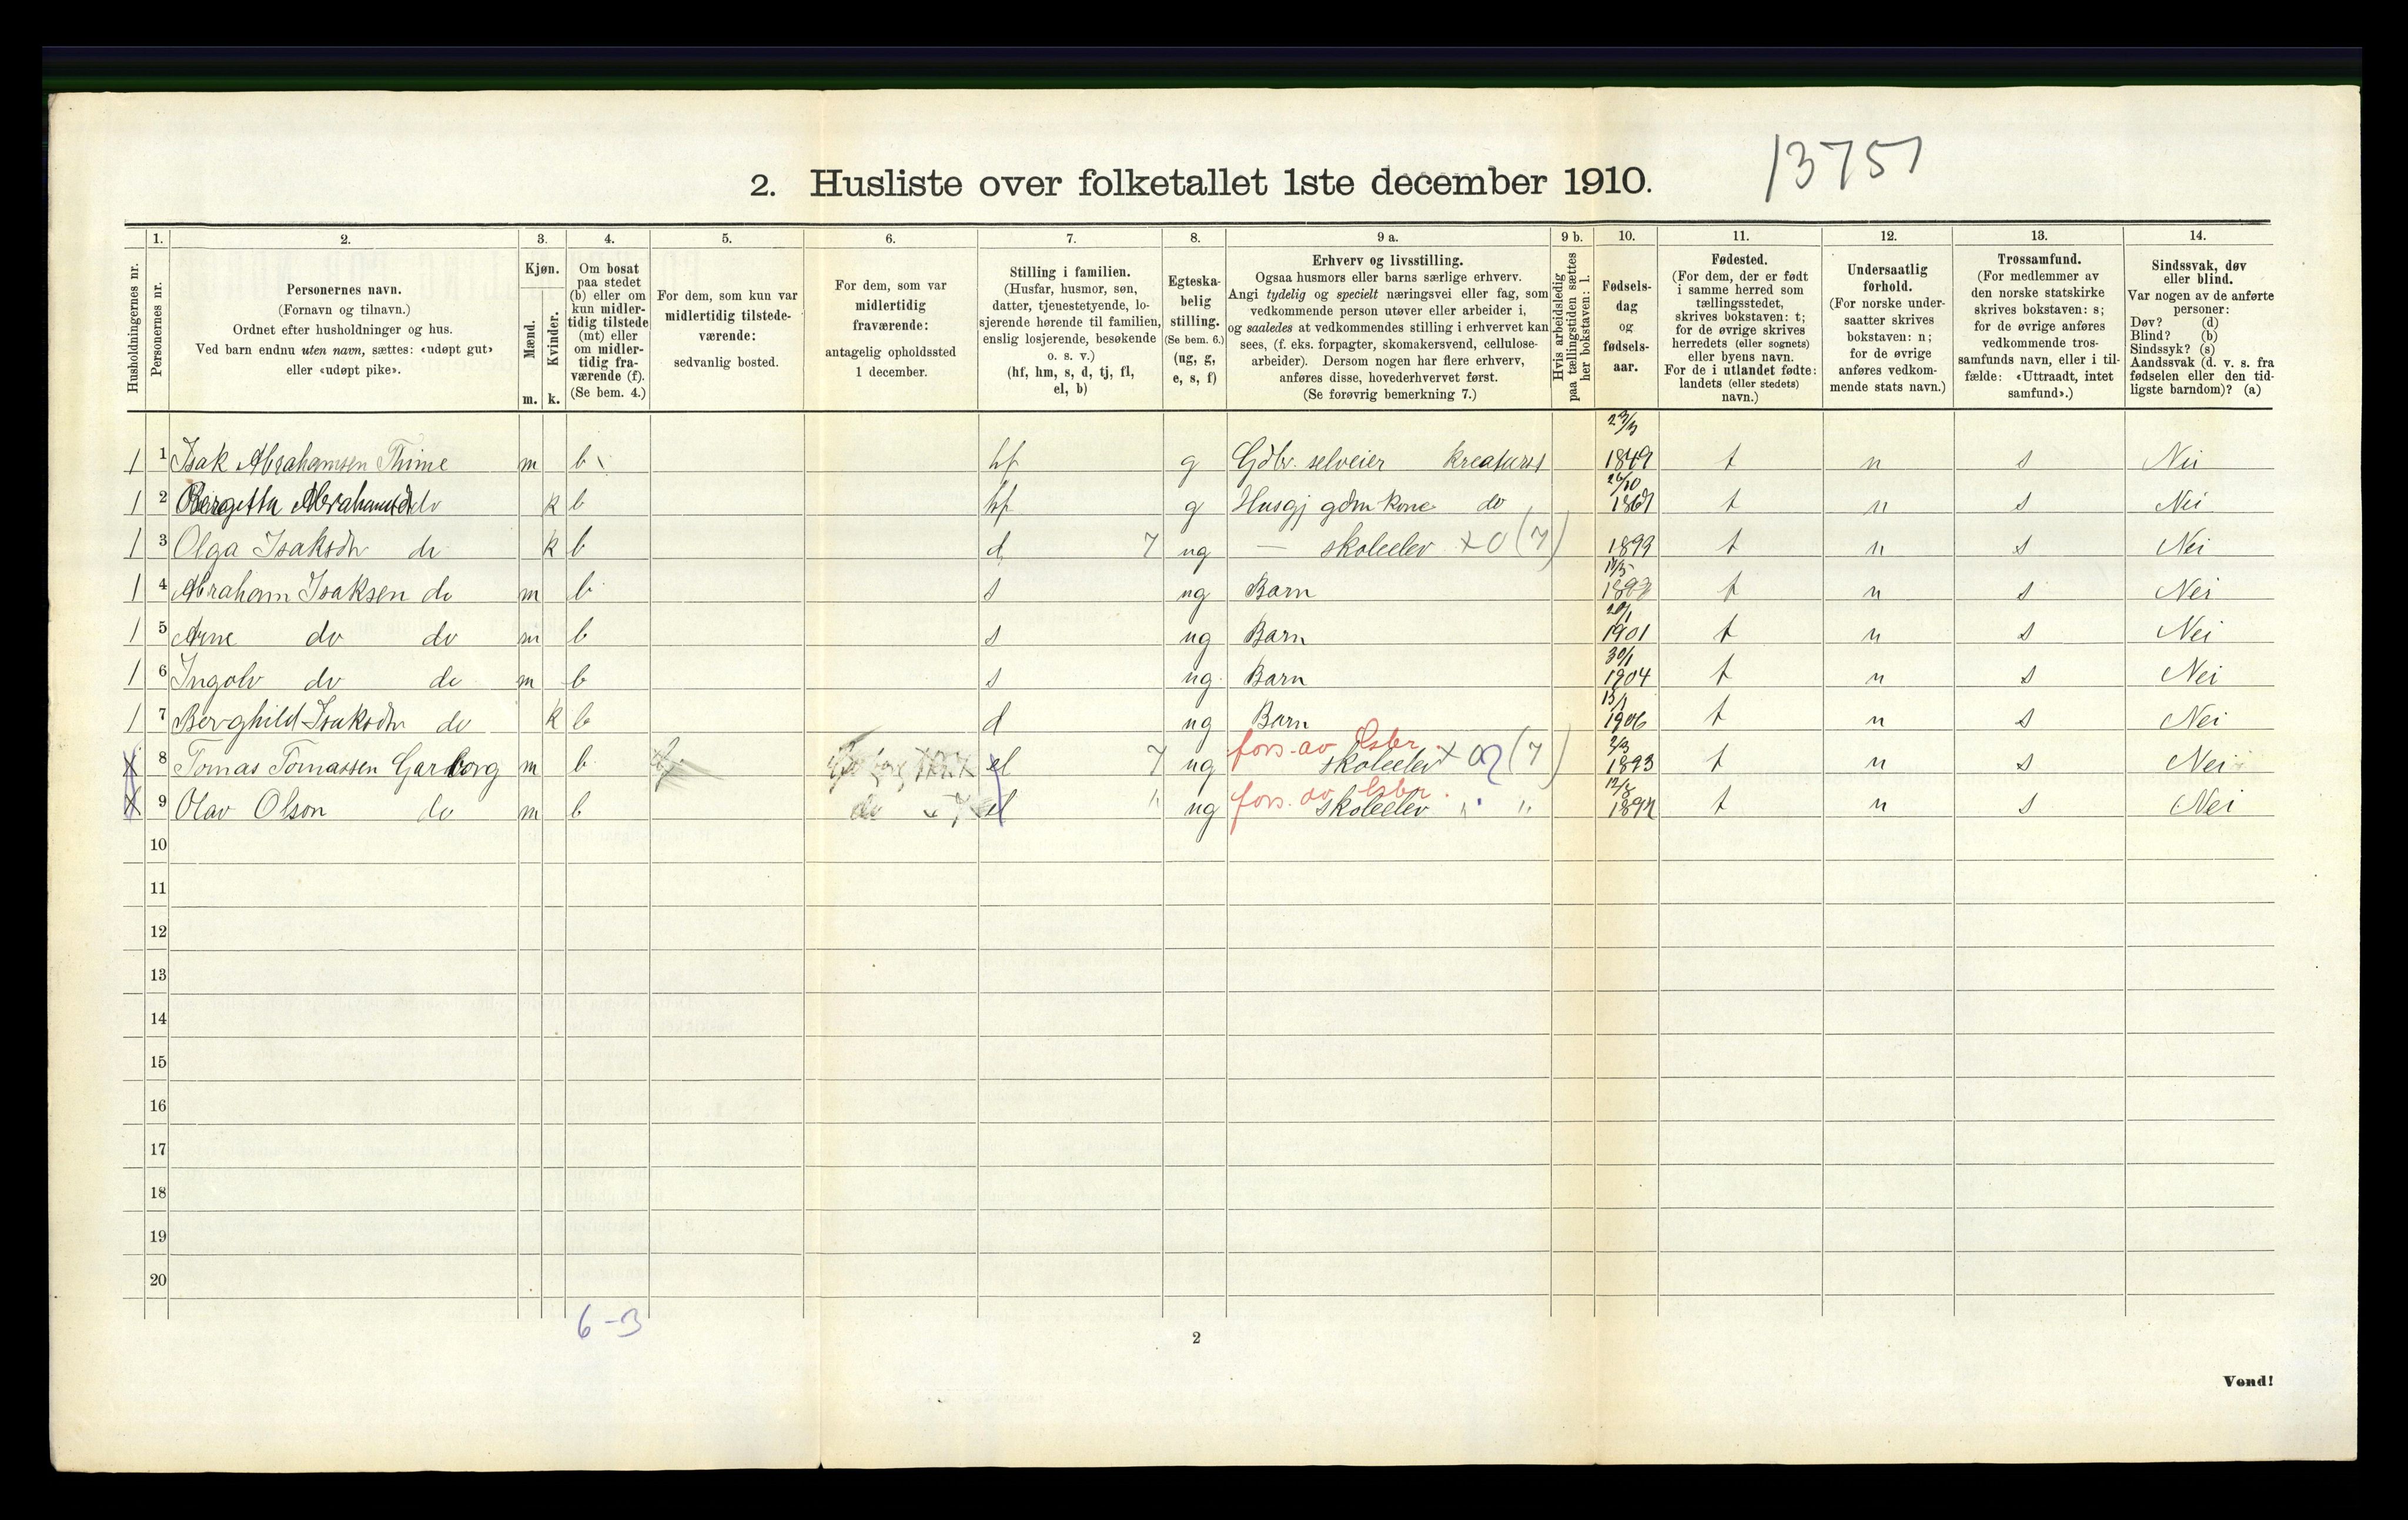 13751
2. Husliste over folketallet 1ste december 1910.
Husholdningernes nr.
1.
Personernes nr.
2.
Personernes navn.
(Fornavn og tilnavn.)
Ordnet efter husholdninger og hus.
Ved barn endnu uten navn, sættes: «udøpt gut»
eller «udøpt pike».
3.
Kjøn.
Mænd.
Kvinder.
m. k.
4.
Om bosat
paa stedet
(b) eller om
kun midler-
tidig tilstede
(mt) eller
om midler-
tidig fra-
værende (f).
(Se bem. 4.)
5.
For dem, som kun var
midlertidig tilstede-
værende:
sedvanlig bosted.
6.
For dem, som var
midlertidig
fraværende:
antagelig opholdssted
1 december.
7.
Stilling i familien.
(Husfar, husmor, søn,
datter, tjenestetyende, lo-
sjerende hørende til familien,
enslig losjerende, besøkende
o. s. v.)
(hf, hm, s, d, tj, fl,
el, b)
8.
Egteska-
belig
stilling.
(Se bem. 6.)
(ug, g,
e, s, f)
9 a.
Erhverv og livsstilling.
Ogsaa husmors eller barns særlige erhverv.
Angi tydelig og specielt næringsvei eller fag, som
vedkommende person utøver eller arbeider i,
og saaledes at vedkommendes stilling i erhvervet kan
sees, (f. eks. forpagter, skomakersvend, cellulose-
arbeider). Dersom nogen har flere erhverv,
anføres disse, hovederhvervet først.
(Se forøvrig bemerkning 7.)
9 b.
Hvis arbeidsledig
paa tællingstiden sættes
her bokstaven: l.
10.
Fødsels-
dag
og
fødsels-
aar.
11.
Fødested.
(For dem, der er født
i samme herred som
tællingsstedet,
skrives bokstaven: t;
for de øvrige skrives
herredets (eller sognets)
eller byens navn.
For de i utlandet fødte:
landets (eller stedets)
navn.)
12.
Undersaatlig
forhold.
(For norske under-
saatter skrives
bokstaven: n;
for de øvrige
anføres vedkom-
mende stats navn.)
13.
Trossamfund.
(For medlemmer av
den norske statskirke
skrives bokstaven: s;
for de øvrige anføres
vedkommende tros-
samfunds navn, eller i til-
fælde: «Uttraadt, intet
samfund».)
14.
Sindssvak, døv
eller blind.
Var nogen av de anførte
personer:
Døv? (d)
Blind? (b)
Sindssyk? (s)
Aandssvak (d. v. s. fra
fødselen eller den tid-
ligste barndom)? (a)
1 1 Isak Abrahamsen Thime m b hf g Gdbr. selveier kreaturst 1849 t n s Nei
1 2 Abrahamsd do k b hf g Husgj gdm kone do 26/10 t n s Nei
1 3 Olga Isaksdtr do k b d 7 ug — skoleelev X O (7) 1899 t n s Nei
1 4 Abraham Isaksen do m b s ug Barn t n s Nei
1 5 Arne do do m b s ug Barn 20/1 1901 t n s Nei
1 6 Ingolv do do m b s ug Barn 30/1 1904 t n s Nei
1 7 Berghild Isaksdtr do k b d ug Barn 13/1 1906 t n s Nei
x 8 Tomas Tomassen Garborg m b el 7 ug fors. av skoleelev X (7) 2/3 1893 t n s Nei
x 9 Olav Olson do m b do el " ug fors. av skoleelev " " t n s Nei
10
11
12
13
14
15
16
17
18
19
20
6 - 3
2
Vend!